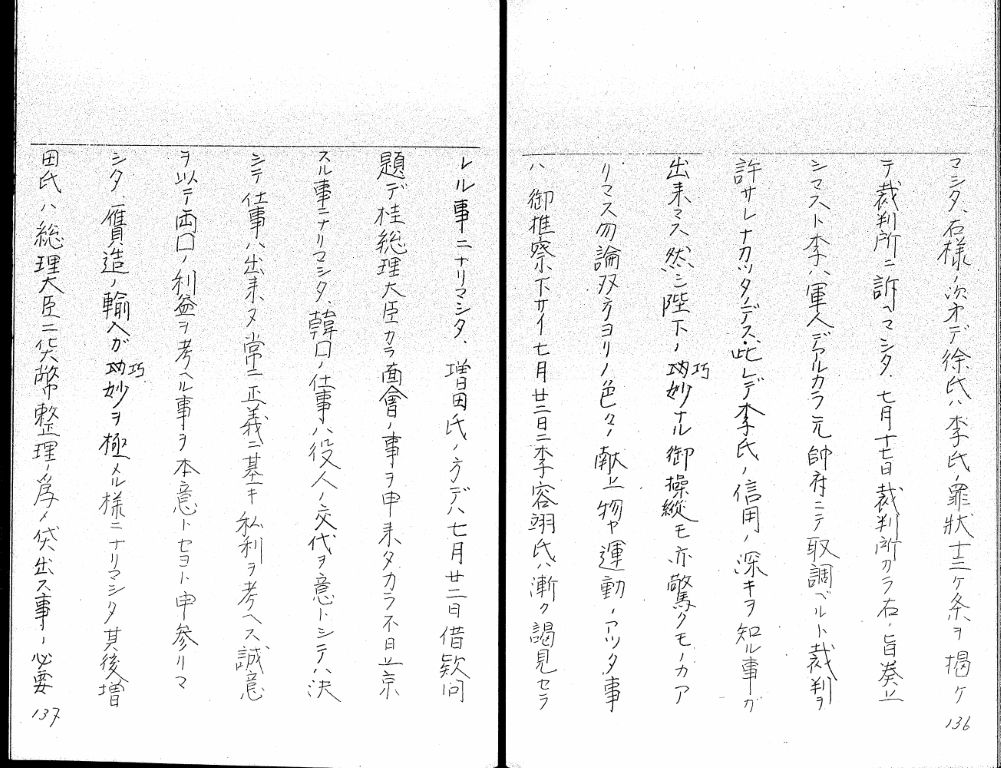 マシタ、右様ノ次オデ徐氏ハ李氏ノ罪狀十三ヶ条ヲ掲ケ
テ裁判所ニ訴ヘマシタ、七月十七日裁判所カラ右ノ旨奏上
シマスト李ハ軍人デアルカラ元帥府ニテ取調ベルト裁判ヲ
許サレナカツタノデス、此レデ李氏ノ信用ノ深キヲ知ル事ガ
出来マス然シ陛下ノ巧妙ナル御操縱モ亦驚クモノカア
リマス勿論双方ヨリノ色々ノ献上物ヤ運動ノアツタ事
ハ御推察下サイ七月廿二日ニ李容翊氏ハ漸ク謁見セラ
136
レル事ニナリマシタ、増田氏ノ方デハ七月廿二日借款问
題デ桂総理大臣カラ面會ノ事ヲ申来タカラ不日上京
スル事ニナリマシタ、韓口ノ仕事ハ役人ノ交代ヲ意トシテハ决
シテ仕事ハ出来ヌ常ニ正義ニ基キ私利ヲ考ヘス誠意
ヲ以テ両口ノ利益ヲ考ヘル事ヲ本意トセヨト申参リマ
シタ、贋造ノ輸入ガ巧妙ヲ極メル様ニナリマシタ其後増
田氏ハ総理大臣ニ貨幣整理ノ為メ貸出ス事ノ必要
137